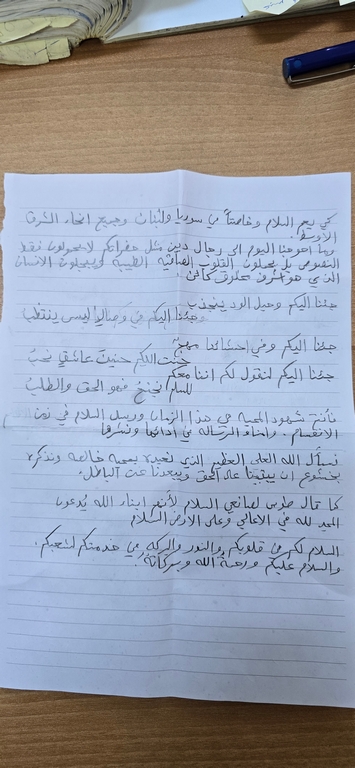 كي يعم السلام وخاصتاً في سوريا ولبنان وجميع انحاء الشرق
الأوسط.
وما احوجنا اليوم الى رجال دين مثل حضراتكم لا يحملون فقط
النصوص بل يحملون القلوب الصافية الطيبة ويبجلون الانسان
الذي هو أشرف مخلوق كائن.
جئنا اليكم وحبل الود ينجذب
وجئنا اليكم في وصالٍ ليس ينقطب
جئنا اليكم وفي احشائنا مهج
جئت اليكم حنينَ عاشقٍ نحبُ
جئنا اليكم لنقول لكم اننا معكم
للسلم نجنحُ فهو الحق والطلبُ
فأنتم شهود المحبة في هذا الزمان ورسل السلام في زمن
الانقسام. وأمناء الرسالة في أدائها ونشرها
نسأل الله العلي العظيم الذي نعبده بمحبه خالصه ونذكره
بخشوع ان يبقينا على الحق ويبعدنا عن الباطل.
كما قال طوبى لصانعي السلام لأنهم ابناء الله يُدعون
المجد لله في الاعالي وعلى الارض السلام
السلام لكم في قلوبكم والنور والبركه في خدمتكم لشعبكم.
والسلام عليكم ورحمة الله وبركاته.